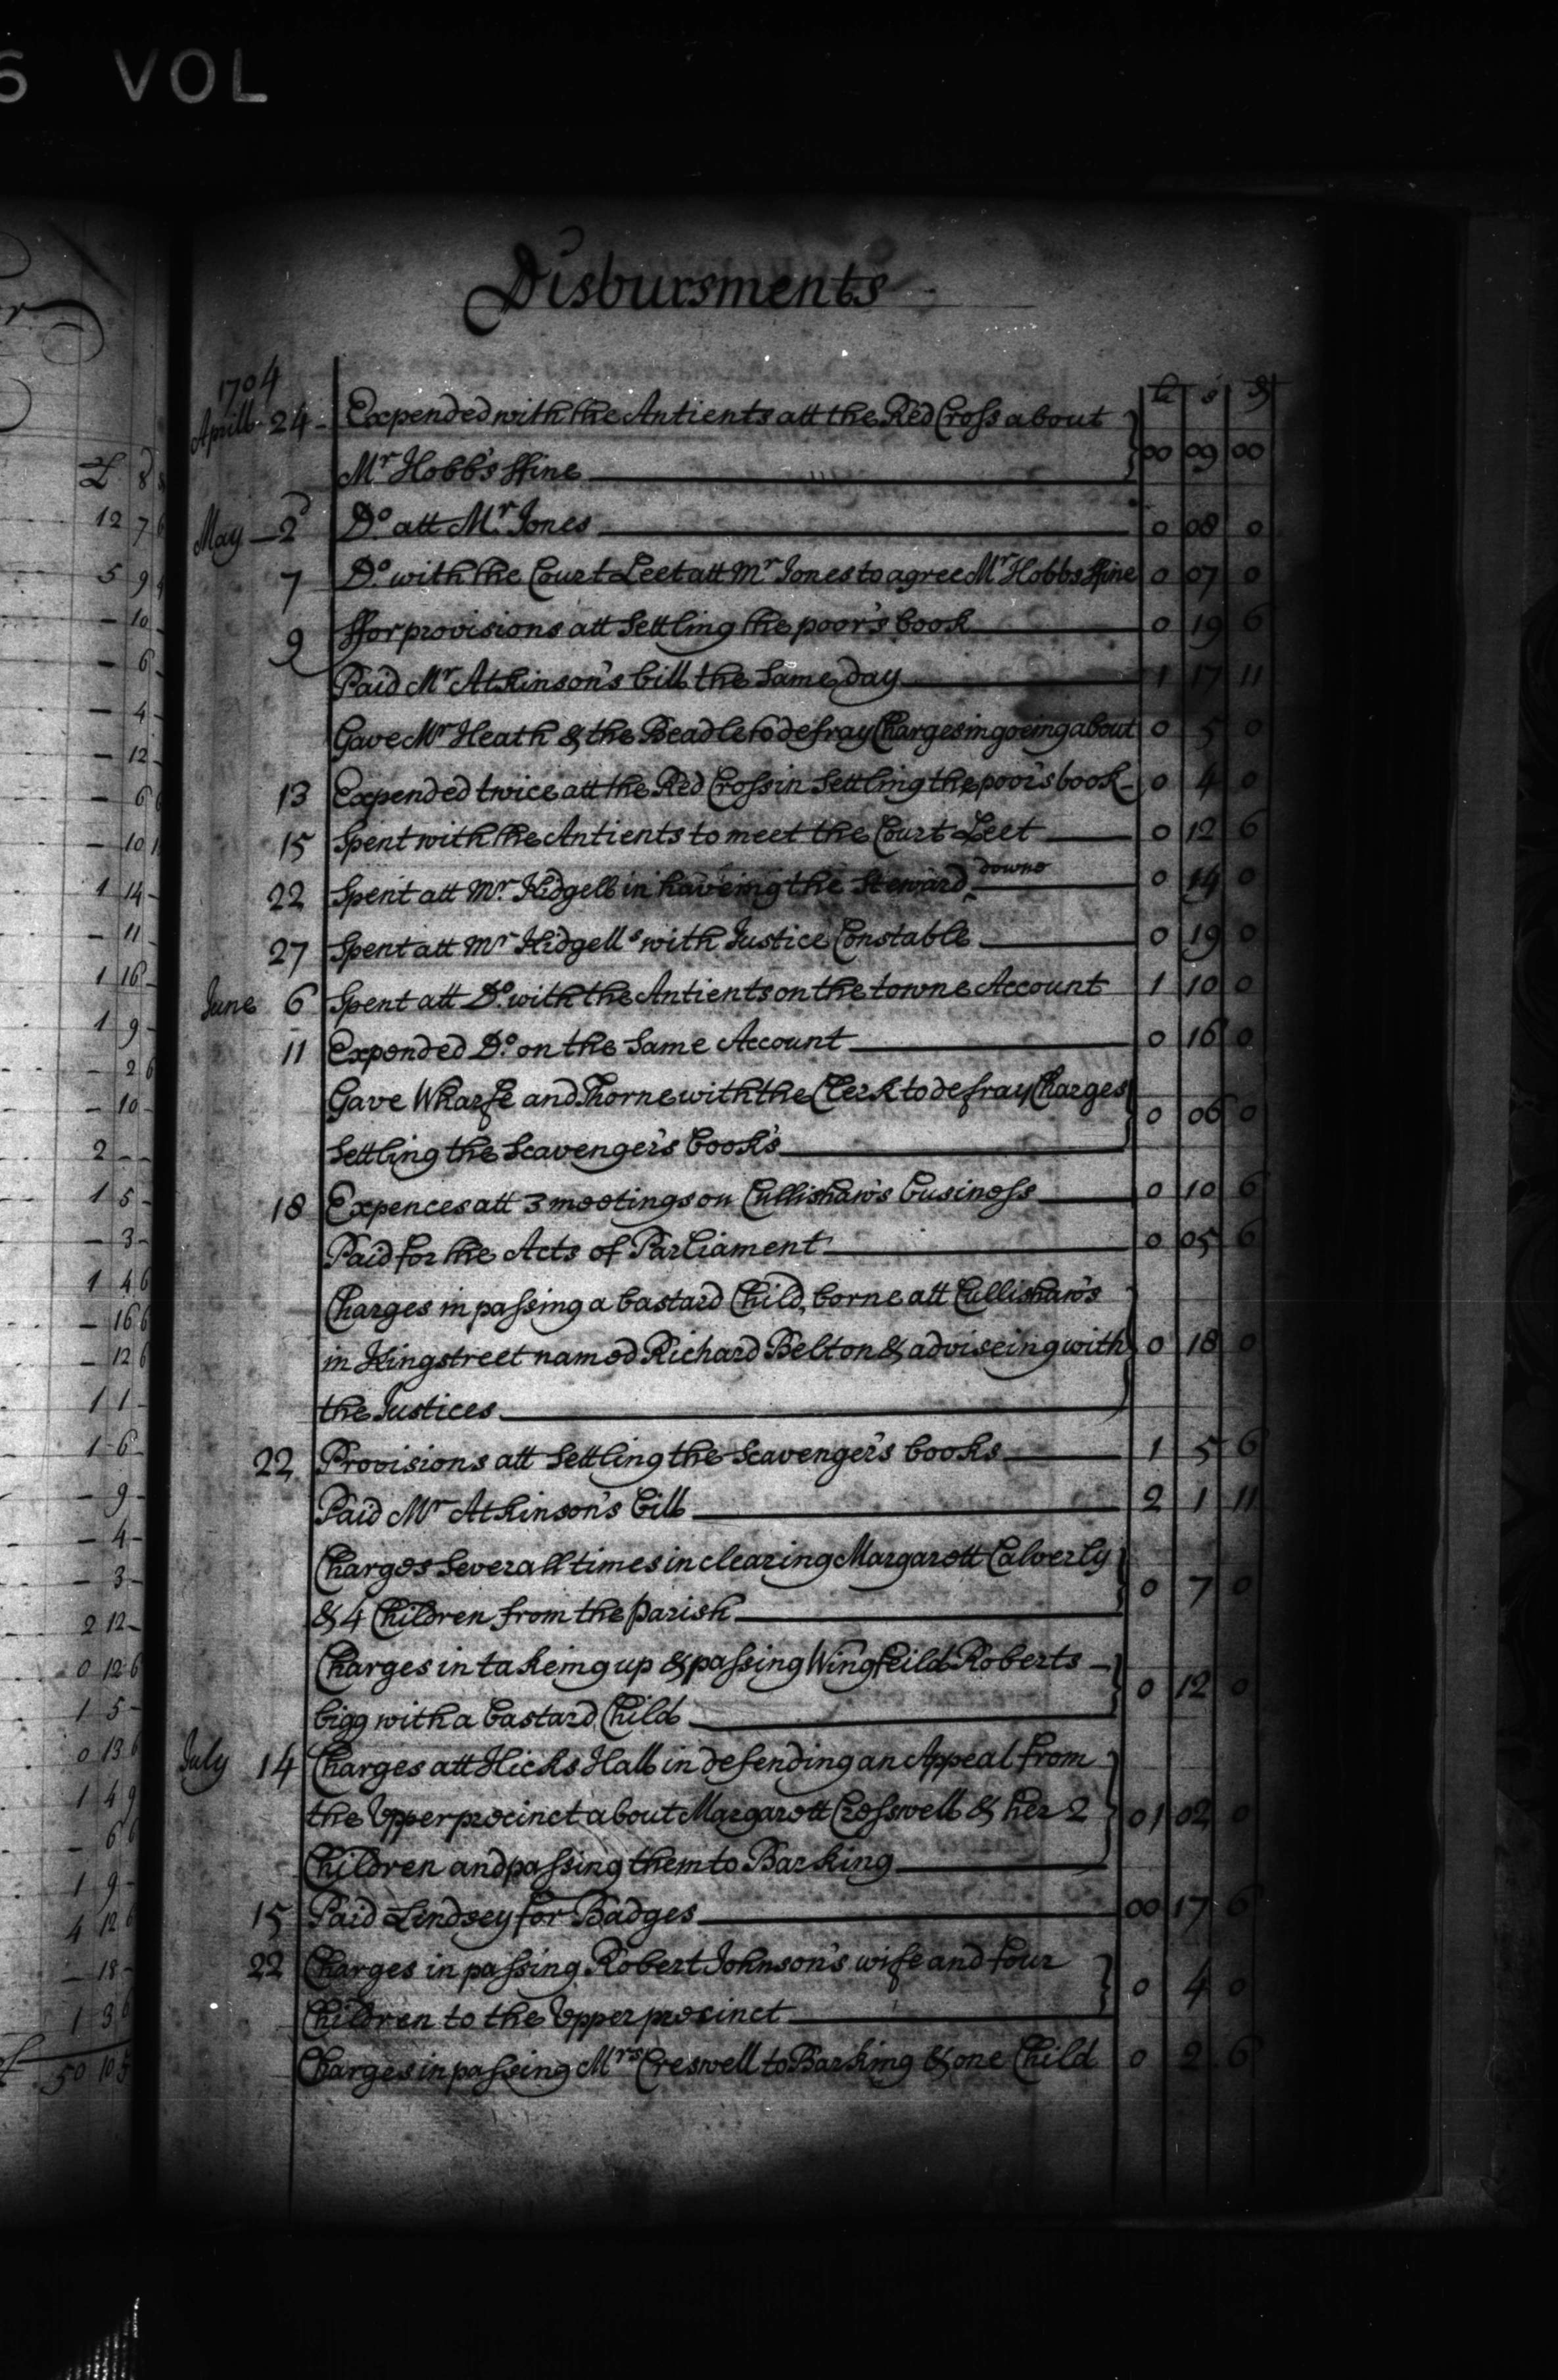 6 VOL
Disbursments
1704
li s d
Aprill 24 - Expended with the Antients att the Red Cross about
Mr Hobb's ffine 00 09 00
May 2d Do. att Mr. Jones 0 08 0
7 Do with the Court Leet att Mr Jones to agree Mr Hobbs ffine 0 07 0
9 ffor provisions att Settling the poor's book 0 19 6
Paid Mr Atkinson's bill the Same day 1 17 11
Gave Mr Heath & the Beadle to defray Charges in goeing about 0 5 0
13 Expended twice att the Red Cross in Settling the poor's book - 0 4 0
15 Spent with the Antients to meet the Court Leet 0 12 6
22 Spent att Mr. Kidgell in haveing the Steward downe 0 14 0
27 Spent att Mr Kidgells with Justice Constable 0 19 0
June 6 Spent att Do. with the Antients on the towne Account 1 10 0
11 Expended Do. on the Same Account 0 16 0
Gave Wharfe and Thorne with the Clerk to defray Charges
Settling the Scavenger's book's 0 06 0
18 Expences att 3 meetings on Cullishaw's business 0 10 6
Paid for the Acts of Parliament 0 05 6
Charges in passing a bastard Child, borne att Cullishaw's
in Kingstreet named Richard Belton & adviseing with 0 18 0
the Justices
22 Provisions att Settling the Scavenger's books 1 5 6
Paid Mr Atkinson's bill 2 1 11
Charges Severall times in clearing Margarett Calverly
& 4 Children from the parish 0 7 0
Charges in takeing up & passing Wingfeild Roberts -
bigg with a bastard Child 0 12 0
July 14 Charges att Hicks Hall in defending an Appeal from
the Upper precinct about Margarett Crosswell & her 2 01 02 0
Children and passing them to Barking
15 Paid Lindsey for Badges 00 17 6
22 Charges in passing Robert Johnson's wife and four
Children to the Upper precinct 0 4 0
Charges in passing Mrs Creswell to Barking & one Child 0 2 6